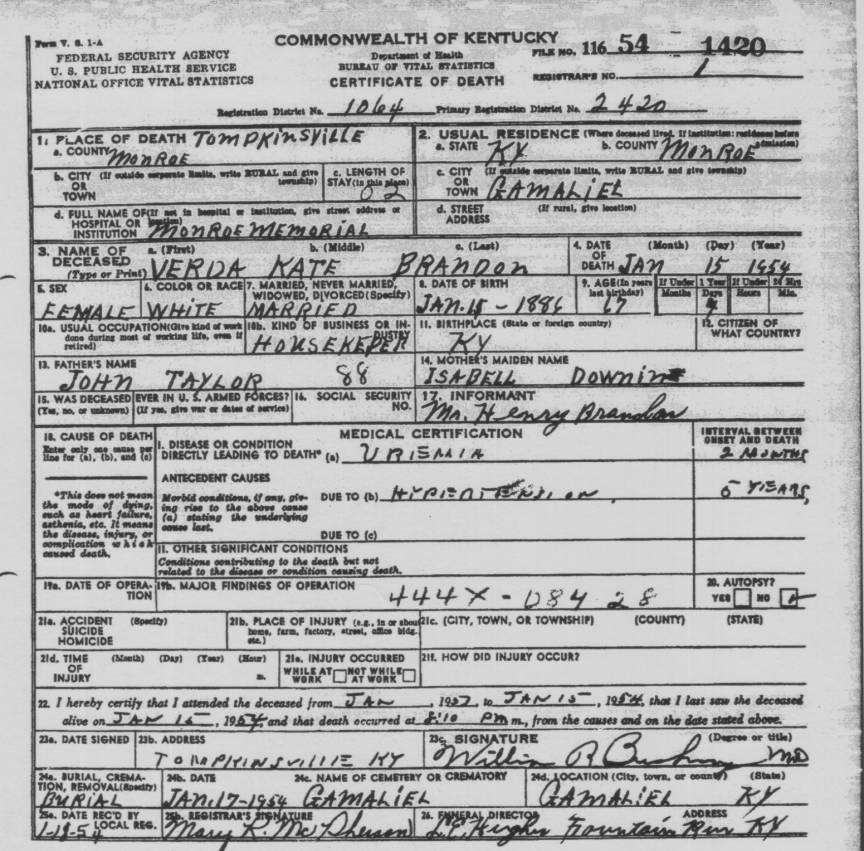 Form V. S. 1-A
COMMONWEALTH OF KENTUCKY
FEDERAL SECURITY AGENCY
U. S. PUBLIC HEALTH SERVICE
NATIONAL OFFICE VITAL STATISTICS
Department of Health
BUREAU OF VITAL STATISTICS
CERTIFICATE OF DEATH
FILE NO. 116 54 1420
REGISTRAR'S NO. 1
Registration District No. 1064 Primary Registration District No. 2420
1. PLACE OF DEATH TOMPKINSVILLE
a. COUNTY MONROE
2. USUAL RESIDENCE (Where deceased lived. If institution: residence before admission)
a. STATE KY b. COUNTY MONROE
b. CITY OR TOWN (If outside corporate limits, write RURAL and give township)
c. LENGTH OF STAY (in this place) 02
c. CITY OR TOWN (If outside corporate limits, write RURAL and give township)
GAMALIEL
d. FULL NAME OF HOSPITAL OR INSTITUTION (If not in hospital or institution, give street address or location)
MONROE MEMORIAL
d. STREET ADDRESS (If rural, give location)
3. NAME OF DECEASED (Type or Print) a. (First) b. (Middle) c. (Last)
VERDA KATE BRANDON
4. DATE OF DEATH (Month) (Day) (Year)
JAN 15 1954
5. SEX
FEMALE
6. COLOR OR RACE
WHITE
7. MARRIED, NEVER MARRIED, WIDOWED, DIVORCED (Specify)
MARRIED
8. DATE OF BIRTH
JAN. 15 - 1886
9. AGE (In years last birthday) If Under 1 Year Months Days If Under 24 Hrs Hours Min.
67
10a. USUAL OCCUPATION (Give kind of work done during most of working life, even if retired)
10b. KIND OF BUSINESS OR INDUSTRY
HOUSEKEPER
11. BIRTHPLACE (State or foreign country)
KY
12. CITIZEN OF WHAT COUNTRY?
13. FATHER'S NAME
JOHN TAYLOR 88
14. MOTHER'S MAIDEN NAME
ISABELL DOWNING
15. WAS DECEASED EVER IN U. S. ARMED FORCES?
(Yes, no, or unknown) (If yes, give war or dates of service)
16. SOCIAL SECURITY NO.
17. INFORMANT
Mr. Henry Brandon
18. CAUSE OF DEATH
Enter only one cause per line for (a), (b), and (c)
MEDICAL CERTIFICATION
INTERVAL BETWEEN ONSET AND DEATH
I. DISEASE OR CONDITION DIRECTLY LEADING TO DEATH* (a) UREMIA 2 MONTHS
*This does not mean the mode of dying, such as heart failure, asthenia, etc. It means the disease, injury, or complication which caused death.
ANTECEDENT CAUSES
Morbid conditions, if any, giving rise to the above cause (a) stating the underlying cause last.
DUE TO (b) HYPERTENSION 5 YEARS,
DUE TO (c)
II. OTHER SIGNIFICANT CONDITIONS
Conditions contributing to the death but not related to the disease or condition causing death.
19a. DATE OF OPERATION
19b. MAJOR FINDINGS OF OPERATION
444X - 084 28
20. AUTOPSY?
YES NO
21a. ACCIDENT SUICIDE HOMICIDE (Specify)
21b. PLACE OF INJURY (e.g., in or about home, farm, factory, street, office bldg. etc.)
21c. (CITY, TOWN, OR TOWNSHIP) (COUNTY) (STATE)
21d. TIME OF INJURY (Month) (Day) (Year) (Hour) m.
21e. INJURY OCCURRED
WHILE AT WORK NOT WHILE AT WORK
21f. HOW DID INJURY OCCUR?
22. I hereby certify that I attended the deceased from JAN, 1957, to JAN 15, 1954, that I last saw the deceased
alive on JAN 15, 1954, and that death occurred at 8:10 PM m., from the causes and on the date stated above.
23a. DATE SIGNED
23b. ADDRESS
TOMPKINSVILLE KY
23c. SIGNATURE (Degree or title)
MD
24a. BURIAL, CREMATION, REMOVAL (Specify)
BURIAL
24b. DATE
JAN. 17-1954
24c. NAME OF CEMETERY OR CREMATORY
GAMALIEL
24d. LOCATION (City, town, or county) (State)
GAMALIEL KY
25a. DATE REC'D BY LOCAL REG.
1-19-54
25b. REGISTRAR'S SIGNATURE
Mary K. McPherson
26. FUNERAL DIRECTOR ADDRESS
Hughes Fountain Run KY